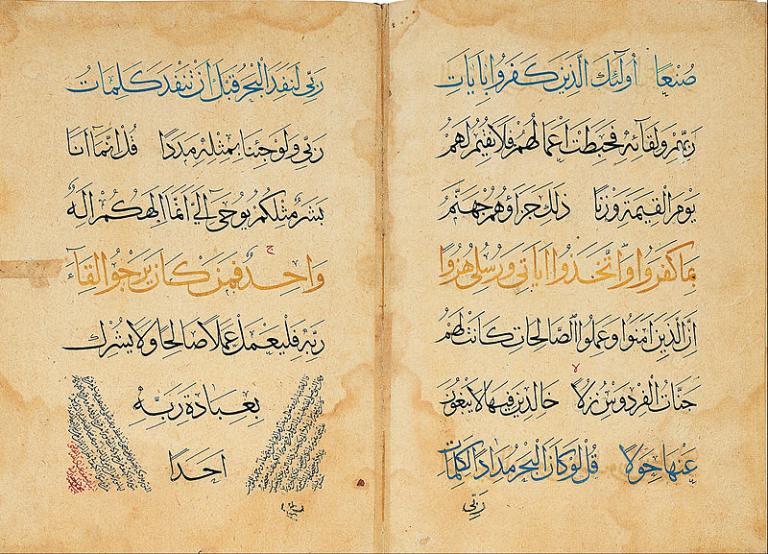 صُنْعًا أُولَٰئِكَ الَّذِينَ كَفَرُوا بِآيَاتِ
رَبِّهِمْ وَلِقَائِهِ فَحَبِطَتْ أَعْمَالُهُمْ فَلَا نُقِيمُ لَهُمْ
يَوْمَ الْقِيمَةِ وَزْنًا ذَلِكَ جَزَاؤُهُمْ جَهَنَّمُ
بِمَا كَفَرُوا وَاتَّخَذُوا آيَاتِي وَرُسُلِي هُزُوًا
إِنَّ الَّذِينَ آمَنُوا وَعَمِلُوا الصَّالِحَاتِ كَانَتْ لَهُمْ
جَنَّاتُ الْفِرْدَوْسِ نُزُلًا خَالِدِينَ فِيهَا لَا يَبْغُونَ
عَنْهَا حِوَلًا قُلْ لَوْ كَانَ الْبَحْرُ مِدَادًا لِكَلِمَاتِ
رَبِّي
رَبِّي لَنَفِدَ الْبَحْرُ قَبْلَ أَنْ تَنْفَدَ كَلِمَاتُ
رَبِّي وَلَوْ جِئْنَا بِمِثْلِهِ مَدَدًا قُلْ إِنَّمَا أَنَا
بَشَرٌ مِثْلُكُمْ يُوحَى إِلَيَّ أَنَّمَا إِلَهُكُمْ إِلَهٌ
وَاحِدٌ فَمَنْ كَانَ يَرْجُوا لِقَاءَ
رَبِّهِ فَلْيَعْمَلْ عَمَلًا صَالِحًا وَلَا يُشْرِكْ
بِعِبَادَةِ رَبِّهِ
أَحَدًا